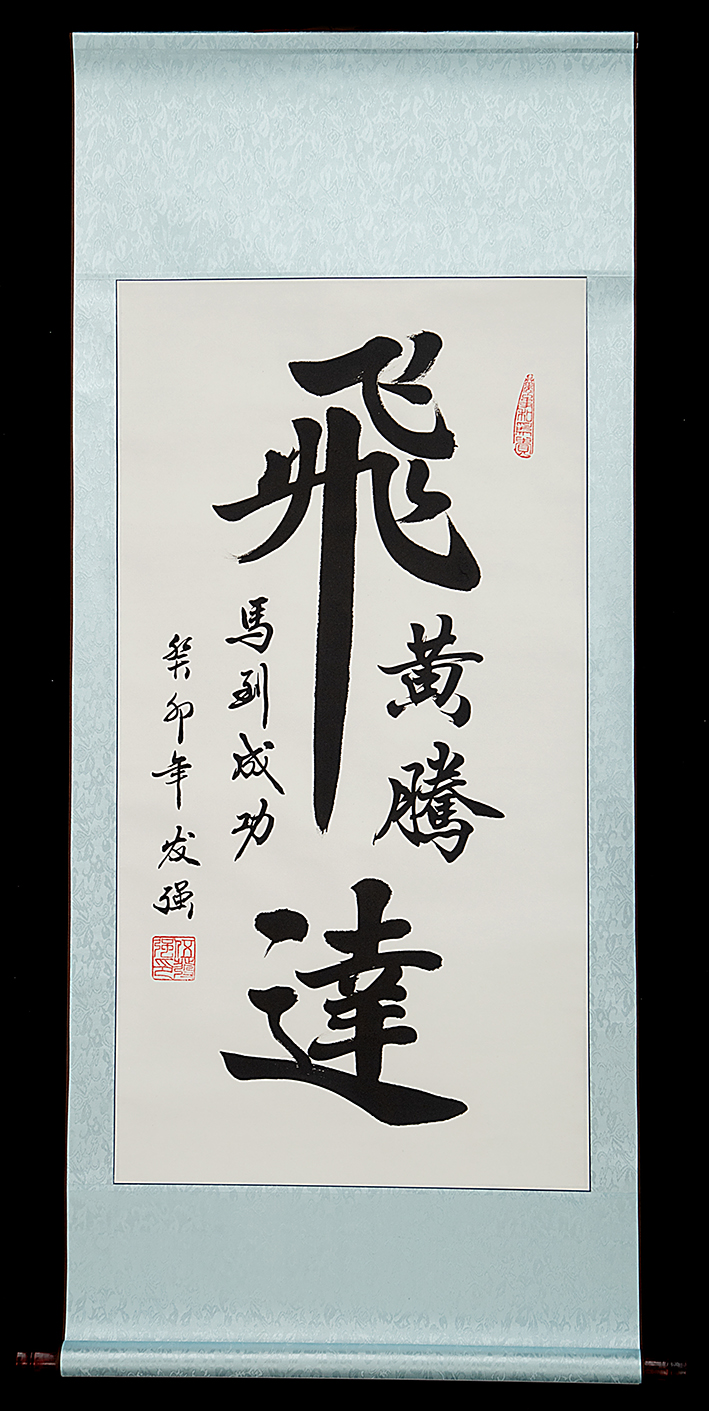 飛黃騰達
馬到成功
癸卯年发强